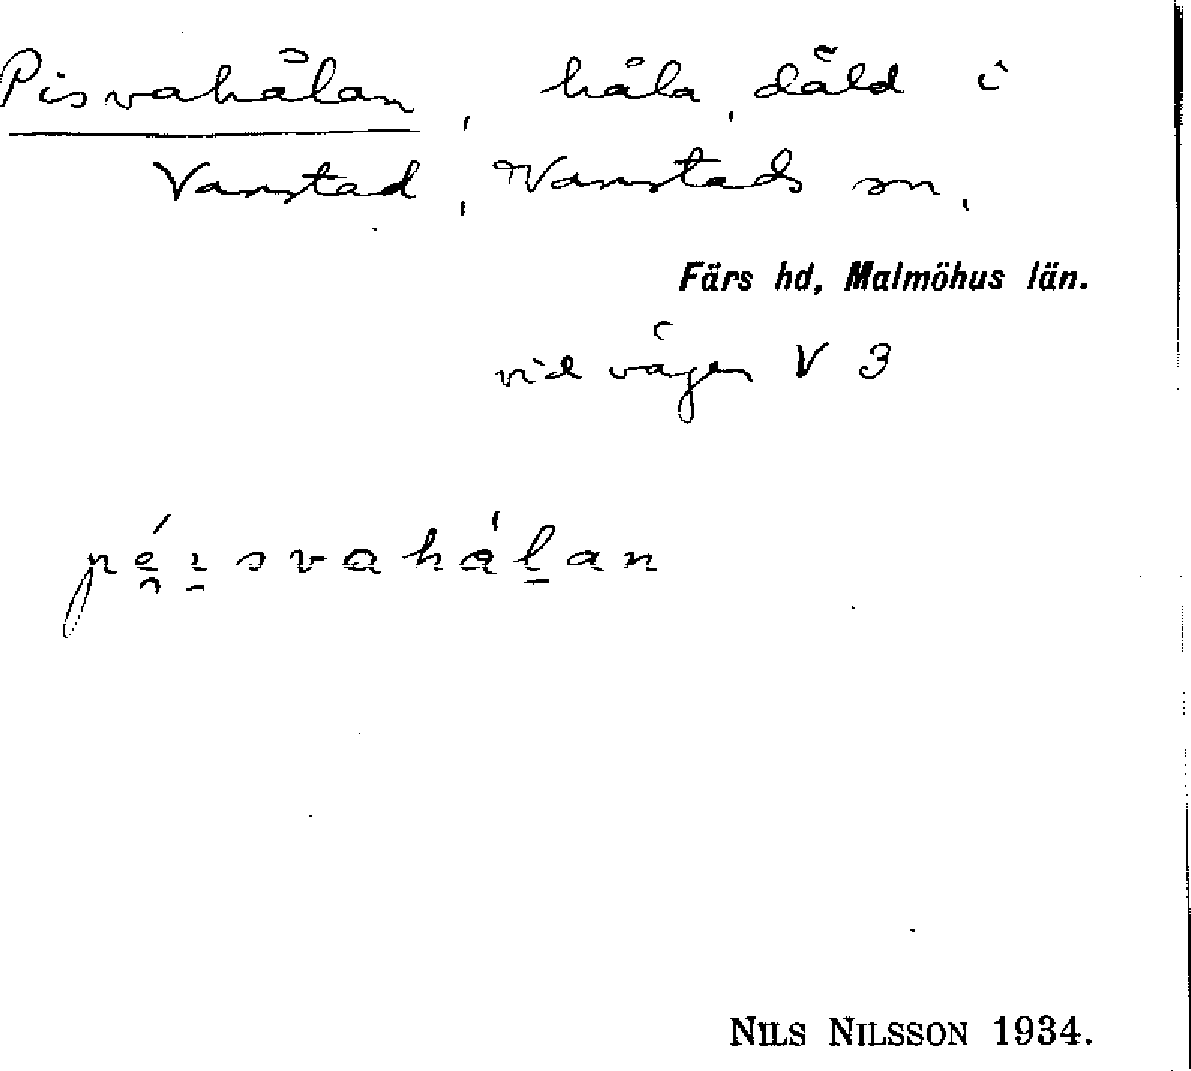 Pisvahålan, håla, däld i
Vanstad, Vanstads sn.
Färs hd, Malmöhus län.
vid vägen V 3
péisvahålan
NILS NILSSON 1934.